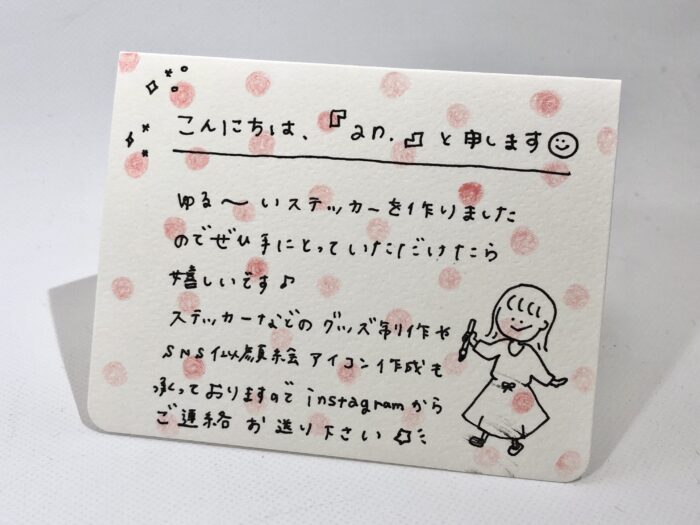 こんにちは、『an.』と申します
ゆる〜いステッカーを作りました
のでぜひ手にとっていただけたら
嬉しいです♪
ステッカーなどのグッズ制作や
SNS似顔絵アイコン作成も
承っておりますので instagramから
ご連絡お送り下さい